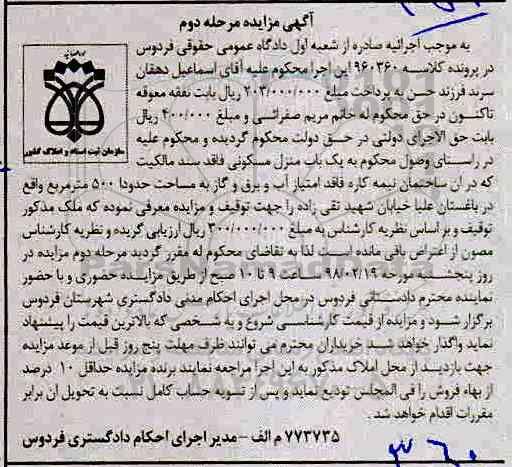 آگهی مزایده مرحله دوم
به موجب اجرائیه صادره از شعبه اول دادگاه عمومی حقوقی فردوس
در پرونده کلاسه ۹۶۰۳۶۰ این اجرا محکوم علیه آقای اسماعیل دهقان
سرند فرزند حسن به پرداخت مبلغ ۲۰۳/۰۰۰/۰۰۰ ریال بابت نفقه معوقه
تاکنون در حق محکوم له خانم مریم صفرائی و مبلغ ۴۰۰/۰۰۰ ریال
بابت حق الاجرای دولتی در حق دولت محکوم گردیده و محکوم علیه
در راستای وصول محکوم به یک باب منزل مسکونی فاقد سند مالکیت
سازمان ثبت اسناد و املاک کشور
که در آن ساختمان نیمه کاره فاقد امتیاز آب و برق و گاز به مساحت حدودا ۵۰۰ مترمربع واقع
در باغستان علیا خیابان شهید تقی زاده را جهت توقیف و مزایده معرفی نموده که ملک مذکور
توقیف و بر اساس نظریه کارشناس به مبلغ ۳۰۰/۰۰۰/۰۰۰ ریال ارزیابی گریده و نظریه کارشناس
مصون از اعتراض باقی مانده است لذا به تقاضای محکوم له مقرر گردید مرحله دوم مزایده در
روز پنجشنبه مورخه ۹۸/۰۲/۱۹ ساعت ۹ تا ۱۰ صبح از طریق مزایده حضوری و با حضور
نماینده محترم دادستانی فردوس در محل اجرای احکام مدنی دادگستری شهرستان فردوس
برگزار شود و مزایده از قیمت کارشناسی شروع و به شخصی که بالاترین قیمت را پیشنهاد
نماید واگذار خواهد شد خریداران محترم می توانند ظرف مهلت پنج روز قبل از موعد مزایده
جهت بازدید از محل املاک مذکور به این اجرا مراجعه نمایند برنده مزایده حداقل ۱۰ درصد
از بهاء فروش را فی المجلس تودیع نماید و پس از تسویه حساب کامل نسبت به تحویل آن برابر
مقررات اقدام خواهد شد .
۷۷۳۷۳۵ م الف - مدیر اجرای احکام دادگستری فردوس